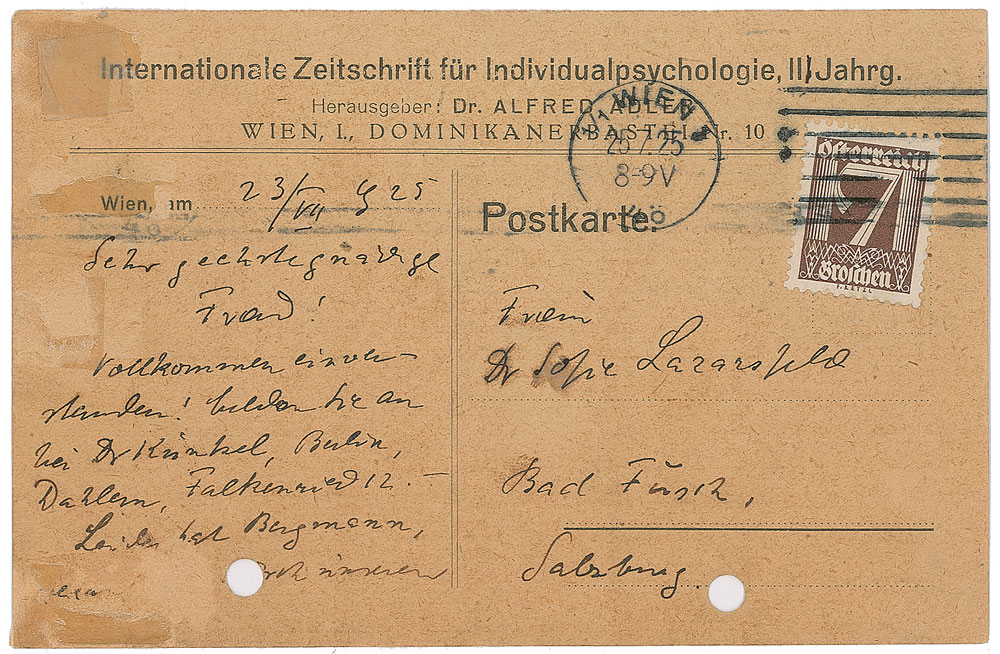 Internationale Zeitschrift für Individualpsychologie, III Jahrg.
Herausgeber: Dr. ALFRED ADLER
WIEN, I., DOMINIKANERBASTEI Nr. 10
1 WIEN 1
25.7.25
8-9V
Österreich
7
Groschen
Wien, am 23/VII 925
Postkarte.
Sehr geehrte gnädige
Frau!
Vollkommen einver-
standen! Melden Sie an
bei Dr Künkel, Berlin,
Dahlem, Falkenried 12. —
Leider hat Bergmann,
unseren
Dr Sofie Lazarsfeld
Bad Fusch,
Salzburg.